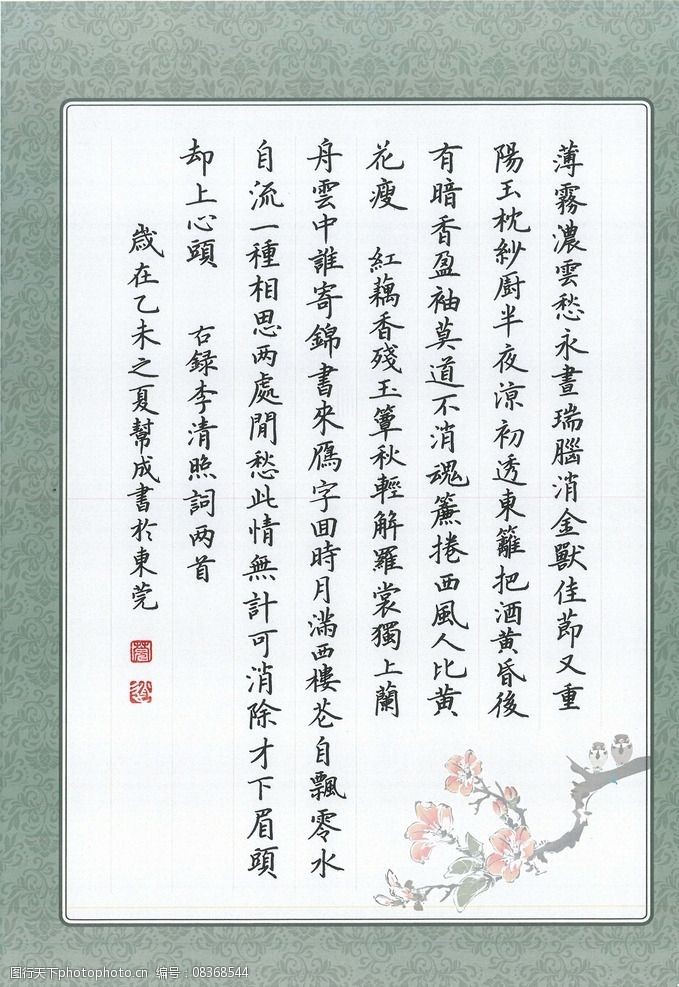 薄霧濃雲愁永晝瑞腦消金獸佳節又重
陽玉枕紗厨半夜涼初透東籬把酒黃昏後
有暗香盈袖莫道不消魂簾捲西風人比黃
花瘦　紅藕香殘玉簟秋輕解羅裳獨上蘭
舟雲中誰寄錦書來雁字回時月滿西樓花自飄零水
自流一種相思兩處閒愁此情無計可消除才下眉頭
却上心頭　右録李清照詞两首
歲在乙未之夏幫成書於東莞
图行天下photophoto.cn 编号：08368544